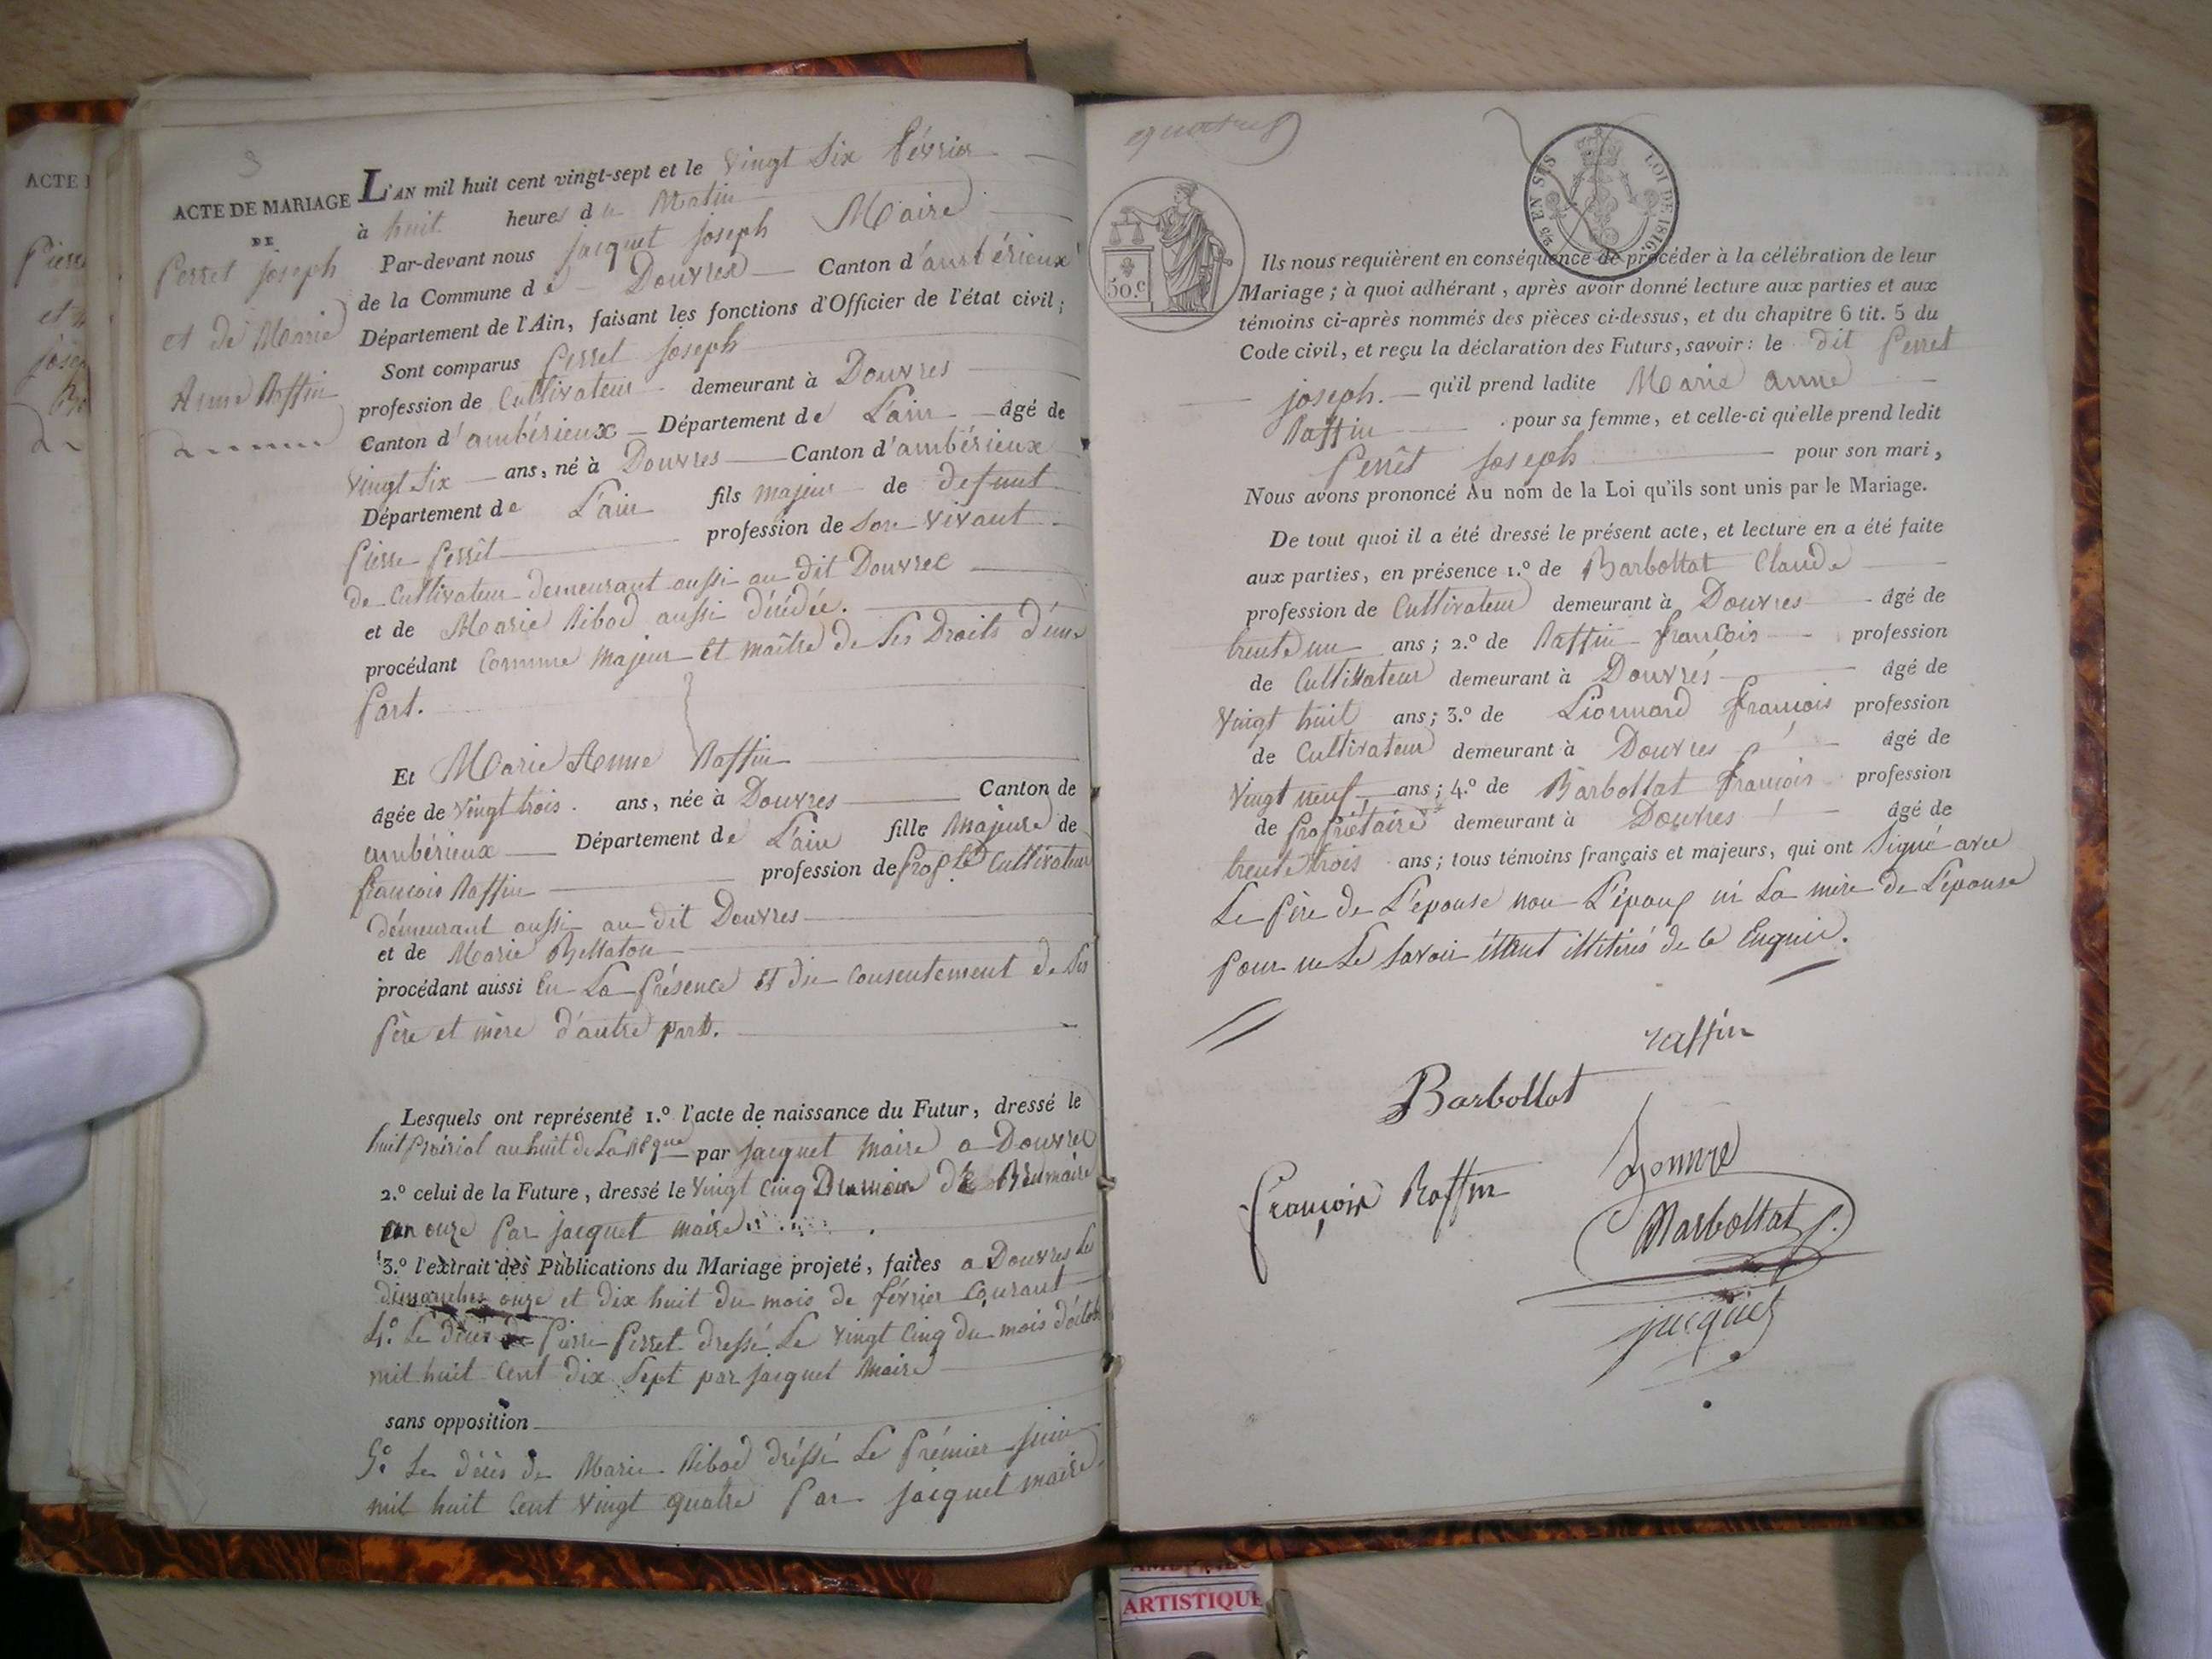 ACTE
3
ACTE DE MARIAGE
DE
Perret joseph
et de Marie
Anne Raffin
L'AN mil huit cent vingt-sept et le Vingt Six février
à huit heures du Matin
Par-devant nous jacquet joseph Maire
de la Commune de Douvres Canton d'ambérieux
Département de l'Ain, faisant les fonctions d'Officier de l'état civil;
Sont comparus Perret joseph
profession de Cultivateur demeurant à Douvres
Canton d'ambérieux Département de L'ain âgé de
Vingt Six ans, né à Douvres Canton d'ambérieux
Département de L'ain fils majeur de defunt
Pierre Perrêt profession de Son Vivant
de Cultivateur demeurant aussi au dit Douvres
et de Marie Ribod aussi décédée.
procédant Comme Majeur et maître de Ses Droits d'une
Part.
Et Marie Anne Raffin
âgée de Vingt trois . ans, née à Douvres Canton de
ambérieux Département de L'ain fille Majeure de
françois Raffin profession de Cultivateur
demeurant aussi au dit Douvres
et de Marie
procédant aussi En La Présence Et du Consentement de Ses
Père et mère d'autre part.
Lesquels ont représenté 1.º l'acte de naissance du Futur, dressé le
huit Prairial an huit de La par jacquet Maire a Douvres
2.º celui de la Future, dressé le Vingt Cinq Brumaire
an onze Par jacquet maire
3.º l'extrait des Publications du Mariage projeté, faites a Douvres Les
dimanches onze et dix huit du mois de février Courant
4.º Le décès de Pierre Perret dressé Le Vingt Cinq du mois d'octob
mil huit Cent dix Sept par jacquet Maire
sans opposition
5.º Le décès de Marie Ribod dréssé Le Prémier juin
mil huit Cent Vingt quatre Par jacquet maire.
EN SUS
LOI DE 1816.
50.c
Ils nous requièrent en conséquence de procéder à la célébration de leur
Mariage; à quoi adhérant, après avoir donné lecture aux parties et aux
témoins ci-après nommés des pièces ci-dessus, et du chapitre 6 tit. 5 du
Code civil, et reçu la déclaration des Futurs, savoir: le dit Perret
joseph. qu'il prend ladite Marie anne
Raffin . pour sa femme, et celle-ci qu'elle prend ledit
Perrêt Joseph pour son mari,
Nous avons prononcé Au nom de la Loi qu'ils sont unis par le Mariage.
De tout quoi il a été dressé le présent acte, et lecture en a été faite
aux parties, en présence 1.º de Barbollat Claude
profession de Cultivateur demeurant à Douvres âgé de
trente un ans; 2.º de Raffin françois profession
de Cultivateur demeurant à Douvres âgé de
Vingt huit ans; 3.º de Lionnard françois profession
de Cultivateur demeurant à Douvres âgé de
Vingt neuf ans; 4.º de Barbollat françois profession
de Propriétaire demeurant à Douvres âgé de
trente trois ans; tous témoins français et majeurs, qui ont Signé avec
Le Père de L'épouse non L'époux ni La mère de L'épouse
Pour ne Le Savoir étant illitérés de ce Enquis.
raffin
Barbollat
françois Raffin
Barbollat f.
jacquet
ARTISTIQUE